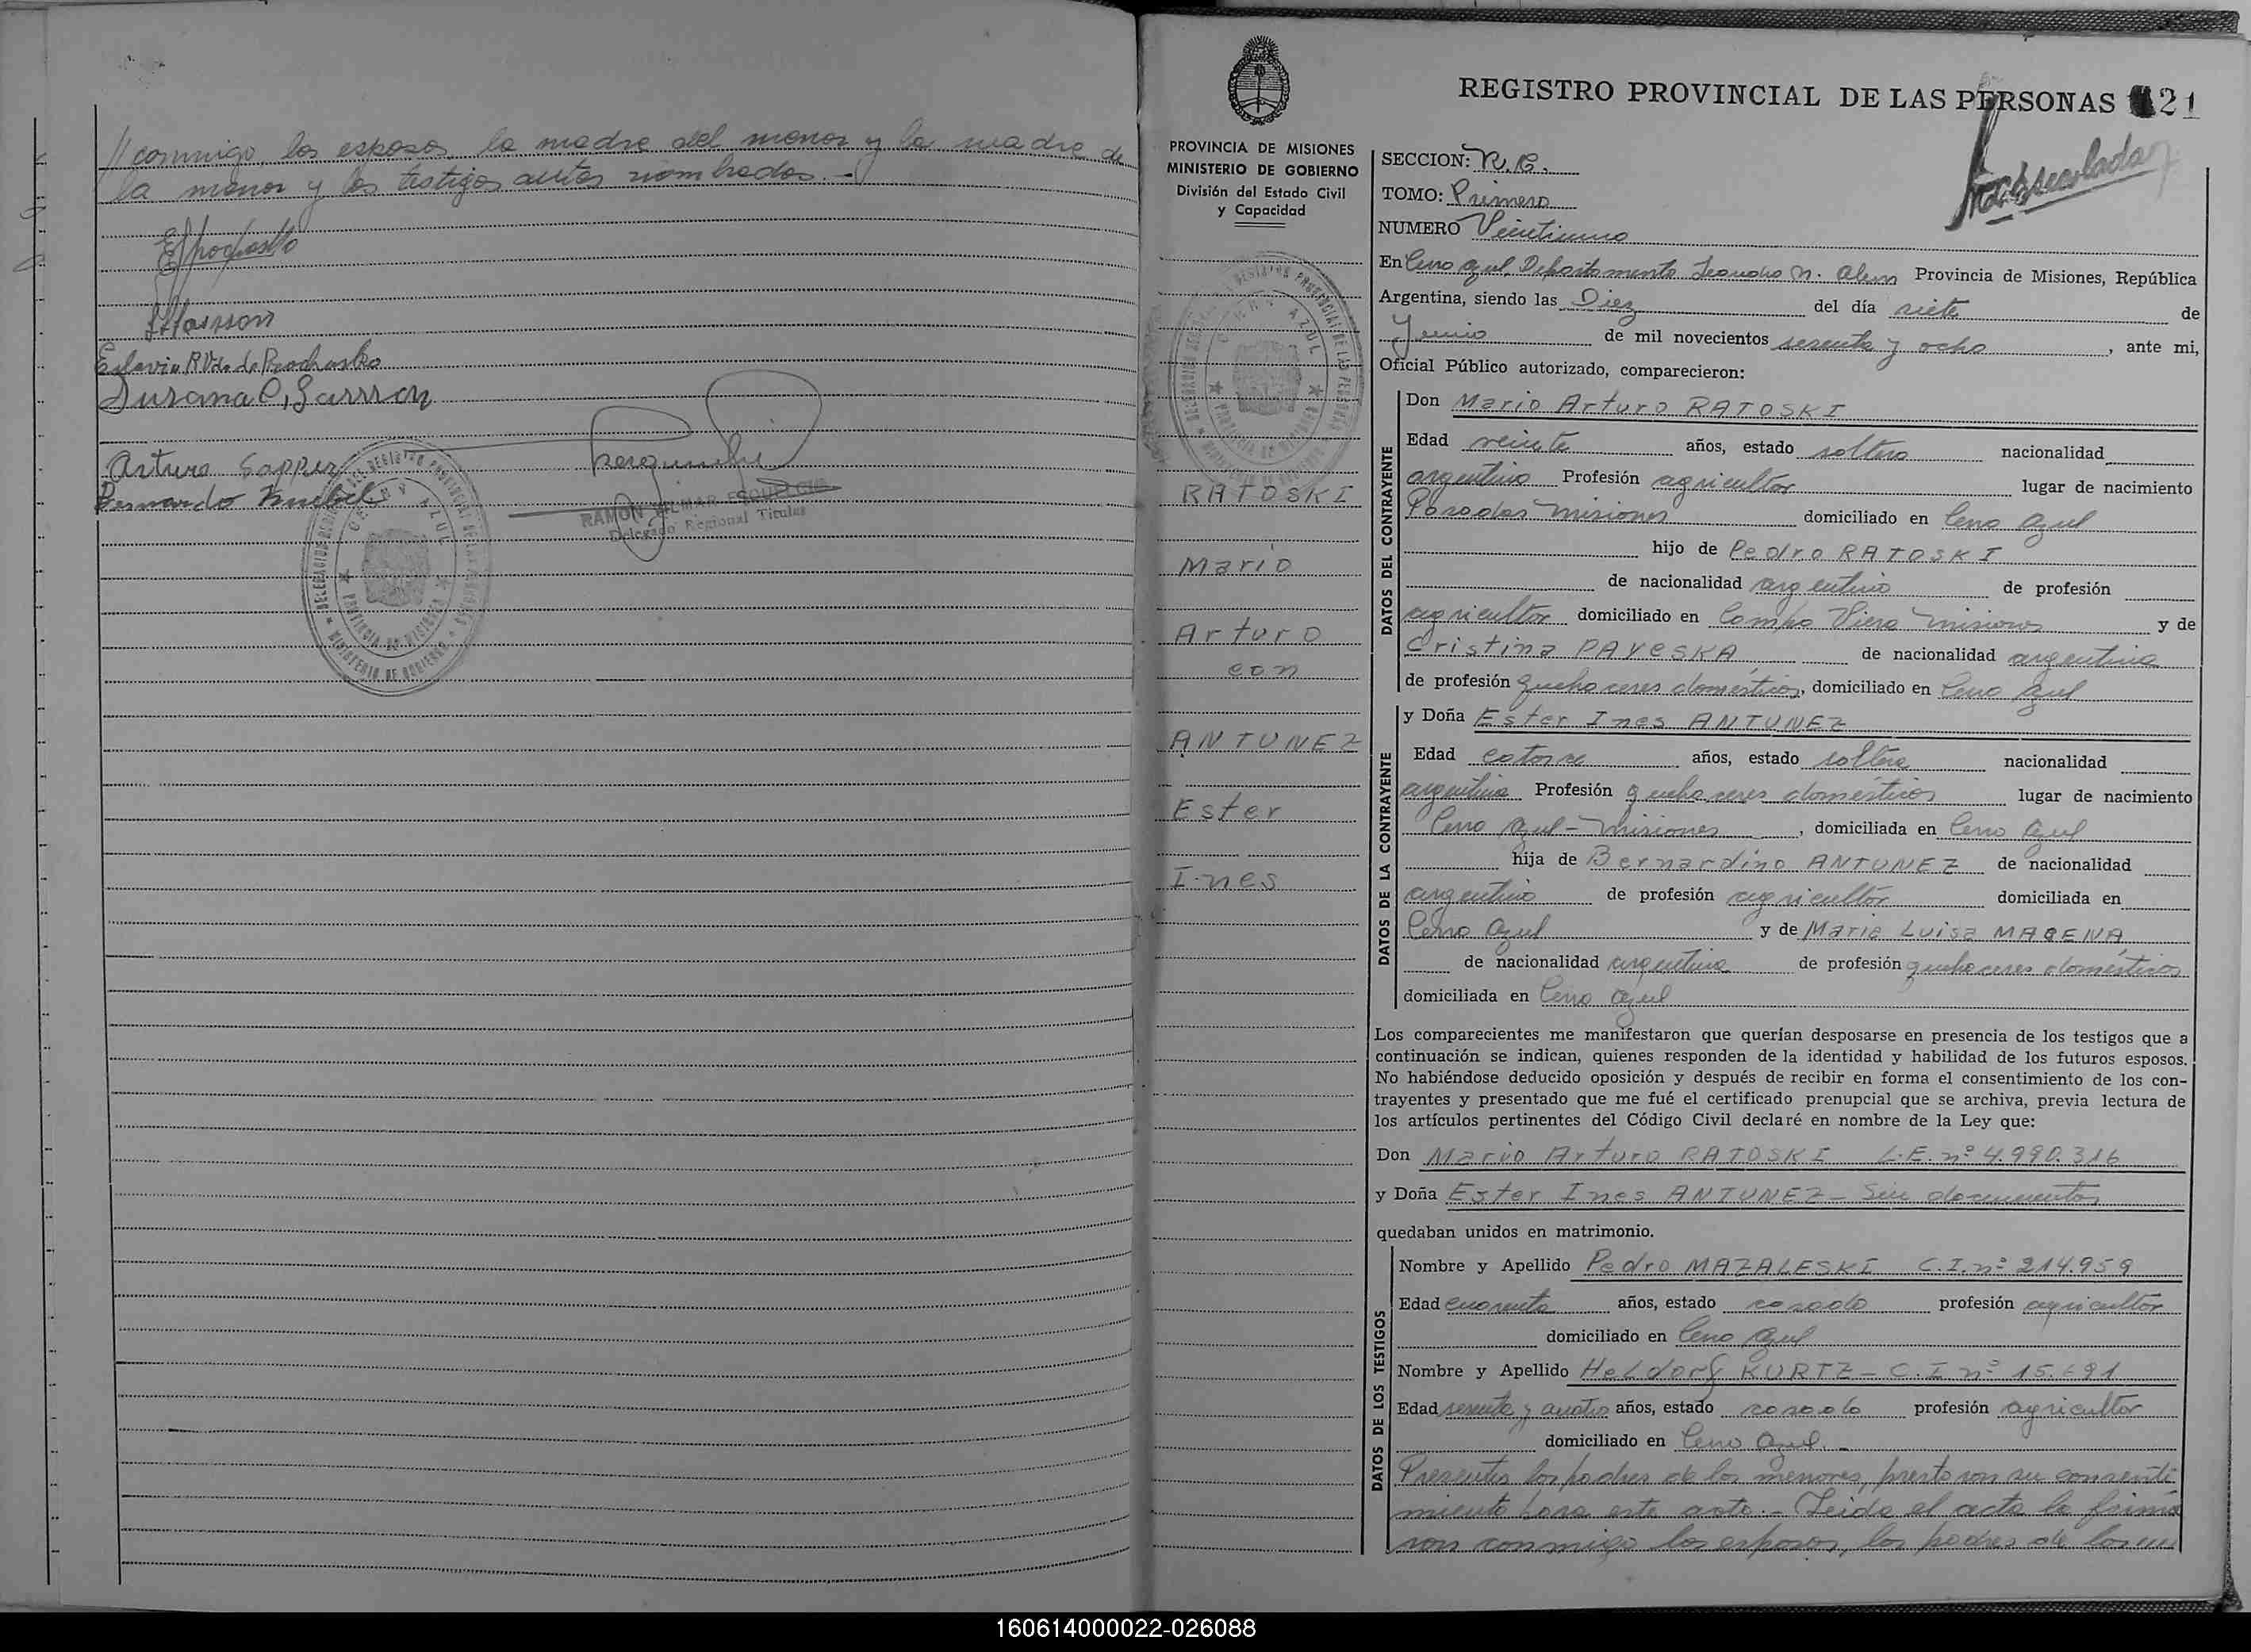 // conmigo, los esposos, la madre del menor y la madre de
la menor y los testigos antes nombrados.-
Eslavia R Vda. de Prochasko
Susana C, Sarrson
Arturo Sapper
Bernardo Knebel
RAMON VILMAR
Delegado Regional Titular
DELEGACION REGISTRO PROVINCIAL DE LAS PERSONAS
CERRO AZUL
PROVINCIA DE MISIONES
MINISTERIO DE GOBIERNO
PROVINCIA DE MISIONES
MINISTERIO DE GOBIERNO
División del Estado Civil
y Capacidad
DELEGACION REGISTRO PROVINCIAL DE LAS PERSONAS
CERRO AZUL
PROVINCIA DE MISIONES
MINISTERIO DE GOBIERNO
RATOSKI
Mario
Arturo
con
ANTUNEZ
Ester
Ines
REGISTRO PROVINCIAL DE LAS PERSONAS 21
SECCION: R.C.
TOMO: Primero
NUMERO Veintiuno
En Cerro Azul, Departamento Leandro N. Alem Provincia de Misiones, República
Argentina, siendo las Diez del día siete de
Junio de mil novecientos sesenta y ocho, ante mi,
Oficial Público autorizado, comparecieron:
DATOS DEL CONTRAYENTE
Don Mario Arturo RATOSKI
Edad veinte años, estado soltero nacionalidad
argentino Profesión agricultor lugar de nacimiento
Posadas Misiones domiciliado en Cerro Azul
hijo de Pedro RATOSKI
de nacionalidad argentino de profesión
agricultor domiciliado en Campo Viera Misiones y de
Cristina PAVESKA, de nacionalidad argentina
de profesión quehaceres domésticos, domiciliado en Cerro Azul
DATOS DE LA CONTRAYENTE
y Doña Ester Ines ANTUNEZ
Edad catorce años, estado soltera nacionalidad
argentina Profesión quehaceres domésticos lugar de nacimiento
Cerro Azul - Misiones, domiciliada en Cerro Azul
hija de Bernardino ANTUNEZ de nacionalidad
argentino de profesión agricultor domiciliada en
Cerro Azul y de Maria Luisa
de nacionalidad argentina de profesión quehaceres domésticos
domiciliada en Cerro Azul
Los comparecientes me manifestaron que querían desposarse en presencia de los testigos que a
continuación se indican, quienes responden de la identidad y habilidad de los futuros esposos.
No habiéndose deducido oposición y después de recibir en forma el consentimiento de los con-
trayentes y presentado que me fué el certificado prenupcial que se archiva, previa lectura de
los artículos pertinentes del Código Civil declaré en nombre de la Ley que:
Don Mario Arturo RATOSKI L.E. nº 4.990.316
y Doña Ester Ines ANTUNEZ - Sin documentos
quedaban unidos en matrimonio.
DATOS DE LOS TESTIGOS
Nombre y Apellido Pedro MAZALESKI C.I. nº 214.959
Edad cuarenta años, estado casado profesión agricultor
domiciliado en Cerro Azul
Nombre y Apellido Heldorf KURTZ - C.I nº 15.691
Edad sesenta y cuatro años, estado casado profesión agricultor
domiciliado en Cerro Azul. -
Presentes los padres de los menores, prestaron su consenti
miento para este acto.- Leida el acta la firma
ron conmigo los esposos, los padres de los
160614000022-026088